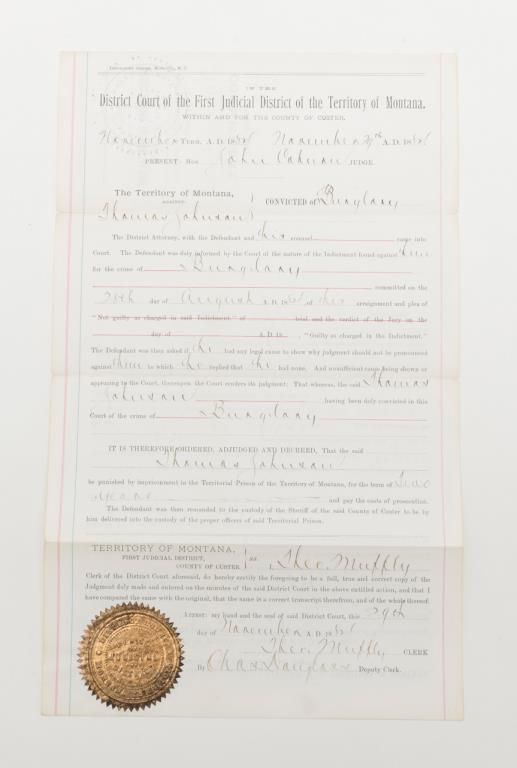 IN THE
District Court of the First Judicial District of the Territory of Montana.
WITHIN AND FOR THE COUNTY OF CUSTER.
November TERM, A. D. 188 November A. D. 188
PRESENT: HON. John JUDGE.
The Territory of Montana,
AGAINST
CONVICTED OF Burglary
Thomas Johnson
The District Attorney, with the Defendant and his counsel came into
Court. The Defendant was duly informed by the Court of the nature of the Indictment found against him
for the crime of Burglary
committed on the
28th day of August A. D. 188 of his arraignment and plea of
"Not guilty as charged in said Indictment." of trial and the verdict of the Jury on the
day of A. D. 18 , "Guilty as charged in the Indictment."
The Defendant was then asked if he had any legal cause to show why judgment should not be pronounced
against him to which he replied that he had none. And no sufficient cause being shown or
appearing to the Court, thereupon the Court renders its judgment: That whereas, the said Thomas
Johnson having been duly convicted in this
Court of the crime of Burglary
IT IS THEREFORE ORDERED, ADJUDGED AND DECREED, That the said
Thomas Johnson
be punished by imprisonment in the Territorial Prison of the Territory of Montana, for the term of
years and pay the costs of prosecution.
The Defendant was then remanded to the custody of the Sheriff of the said County of Custer to be by
him delivered into the custody of the proper officers of said Territorial Prison.
TERRITORY OF MONTANA,
FIRST JUDICIAL DISTRICT,
COUNTY OF CUSTER
ss. I, Theo. Muffly
Clerk of the District Court aforesaid, do hereby certify the foregoing to be a full, true and correct copy of the
Judgment duly made and entered on the minutes of the said District Court in the above entitled action, and that I
have compared the same with the original, that the same is a correct transcript therefrom, and of the whole thereof.
ATTEST: my hand and the seal of said District Court, this 29th
day of November A. D. 188
Theo. Muffly CLERK
By Chas Deputy Clerk.